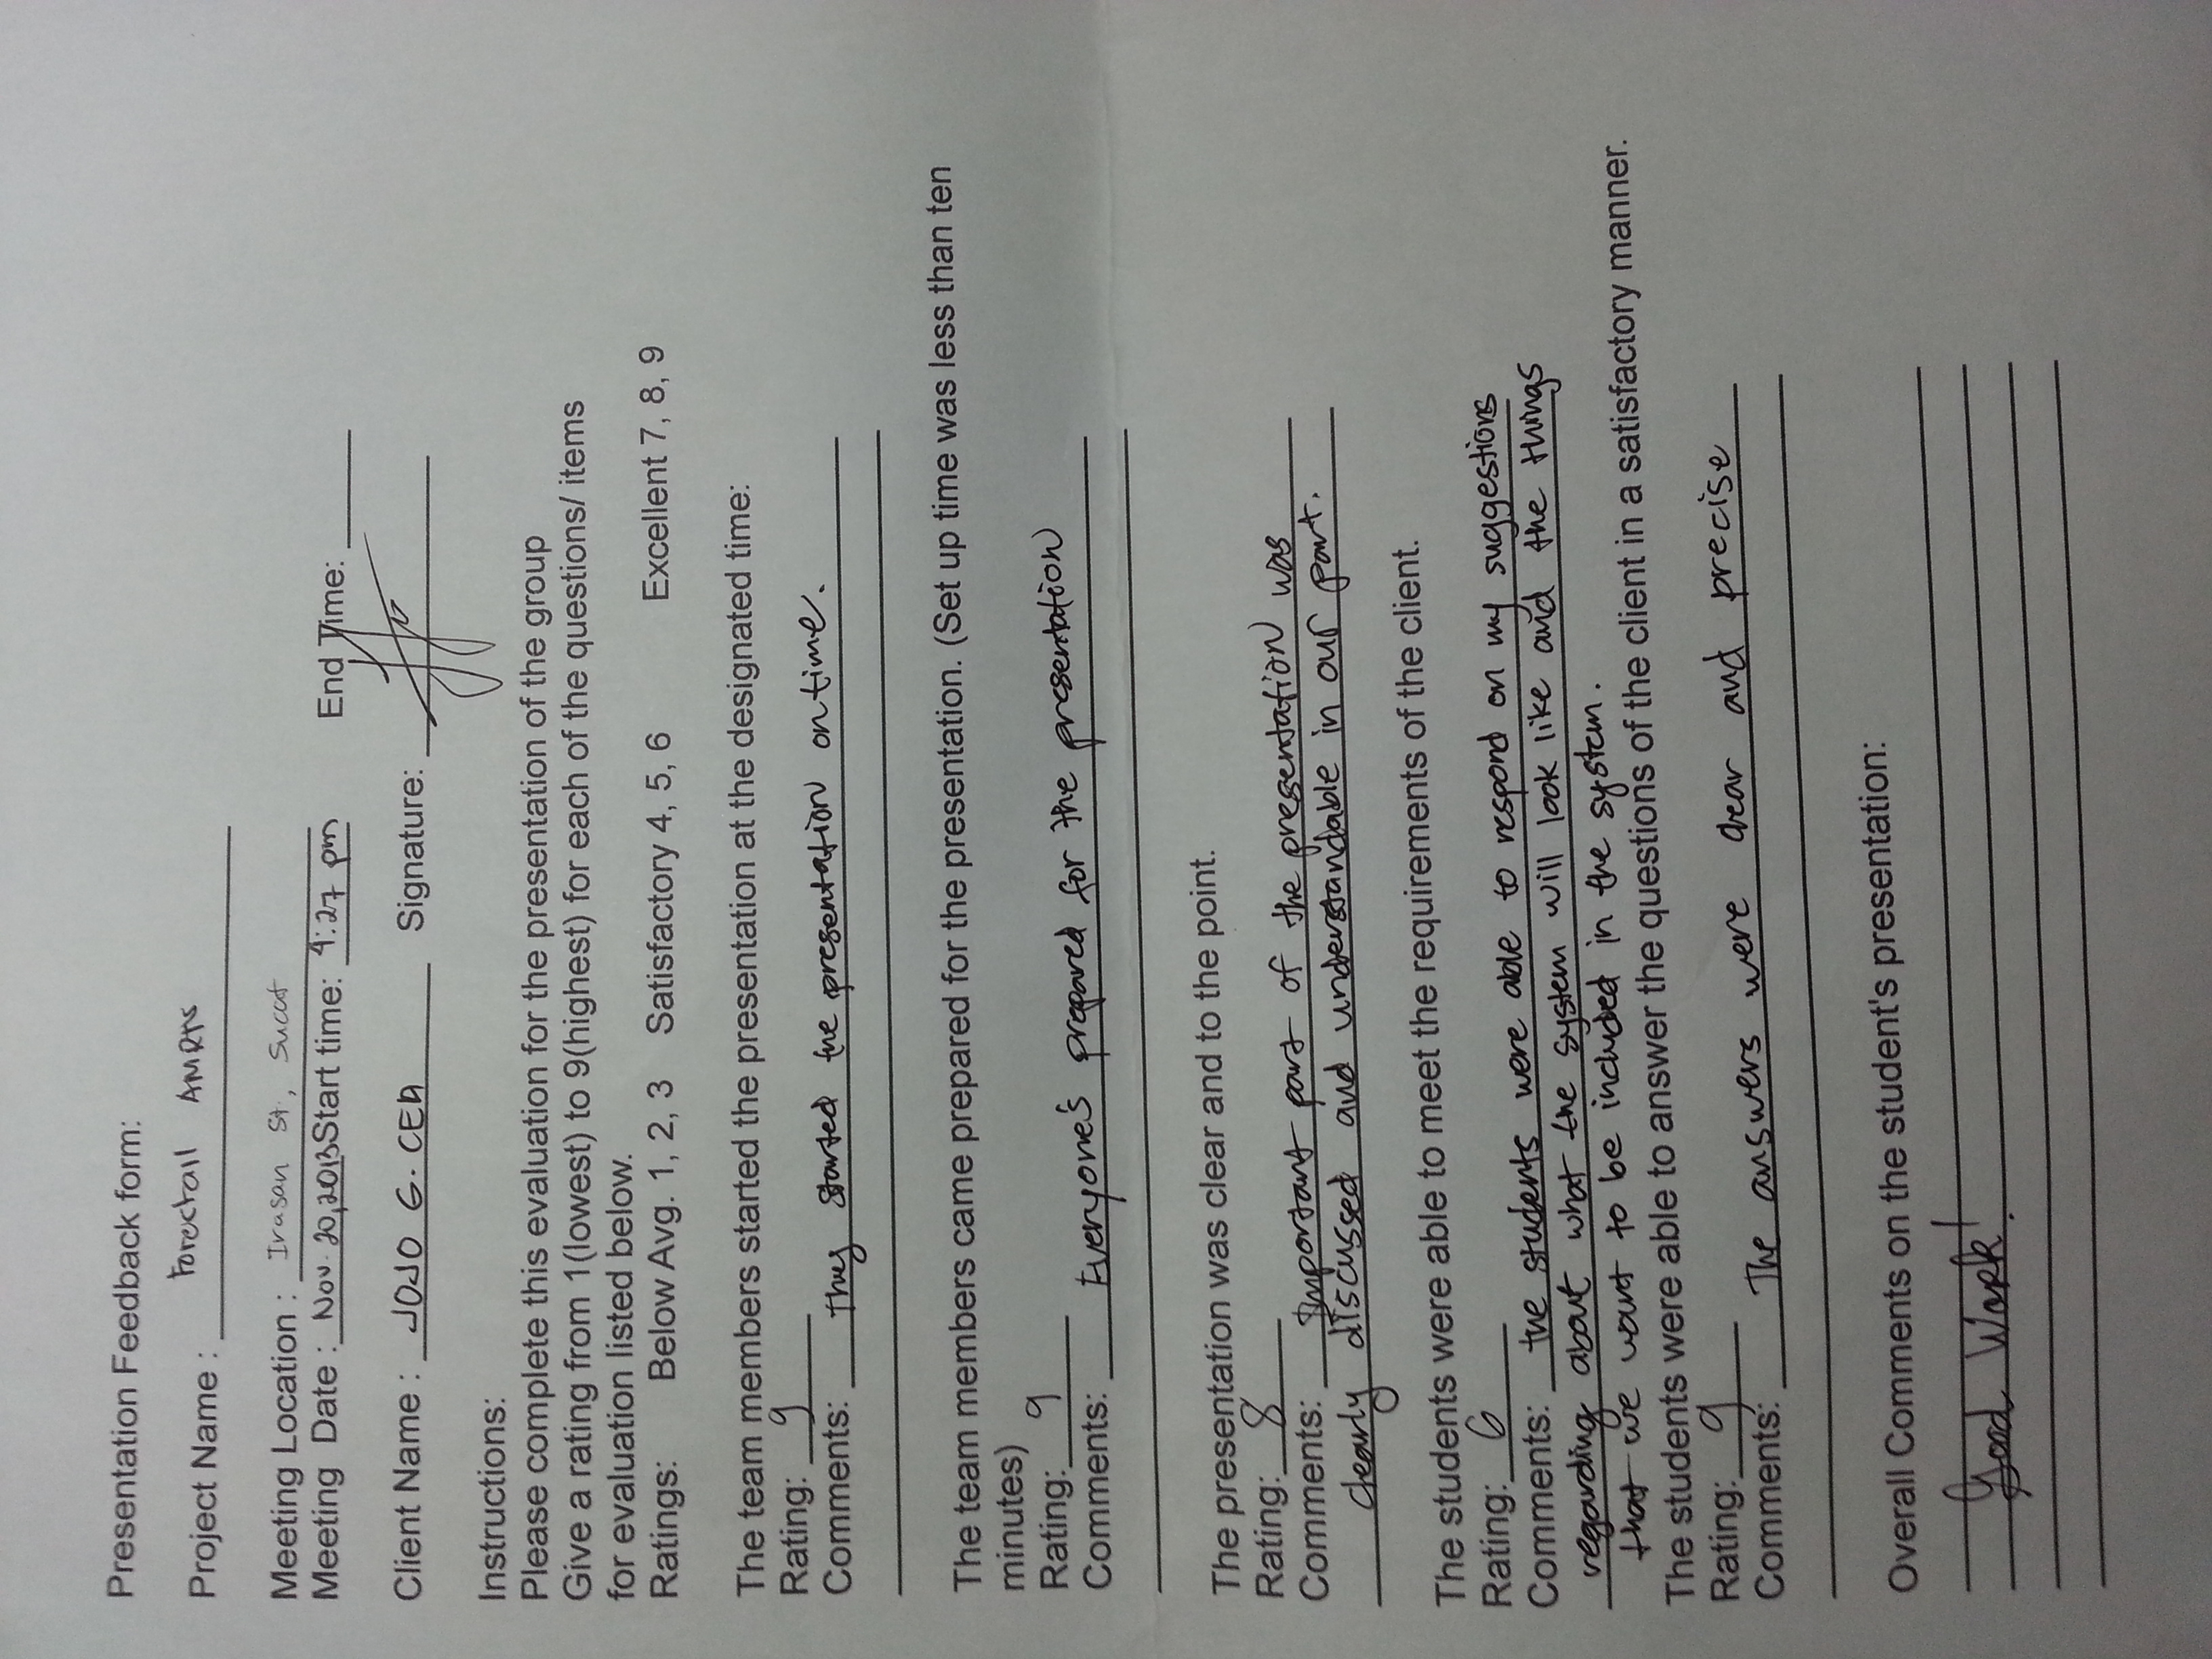 Presentation Feedback form:
Project Name : AMRTS
Meeting Location : Irasan St., Sucat
Meeting Date : Nov. 20, 2013 Start time: 4:27 pm End Time:
Client Name : JOJO G. CEA Signature:
Instructions:
Please complete this evaluation for the presentation of the group
Give a rating from 1(lowest) to 9(highest) for each of the questions/ items
for evaluation listed below.
Ratings: Below Avg. 1, 2, 3 Satisfactory 4, 5, 6 Excellent 7, 8, 9
The team members started the presentation at the designated time:
Rating: 9
Comments: They started the presentation on time.
The team members came prepared for the presentation. (Set up time was less than ten
minutes)
Rating: 9
Comments: Everyone's prepared for the presentation
The presentation was clear and to the point.
Rating: 8
Comments: Important part of the presentation was
clearly discussed and understandable in our part.
The students were able to meet the requirements of the client.
Rating: 6
Comments: the students were able to respond on my suggestions
regarding about what the system will look like and the things
that we want to be included in the system.
The students were able to answer the questions of the client in a satisfactory manner.
Rating: 9
Comments: The answers were clear and precise
Overall Comments on the student's presentation:
Good Work!